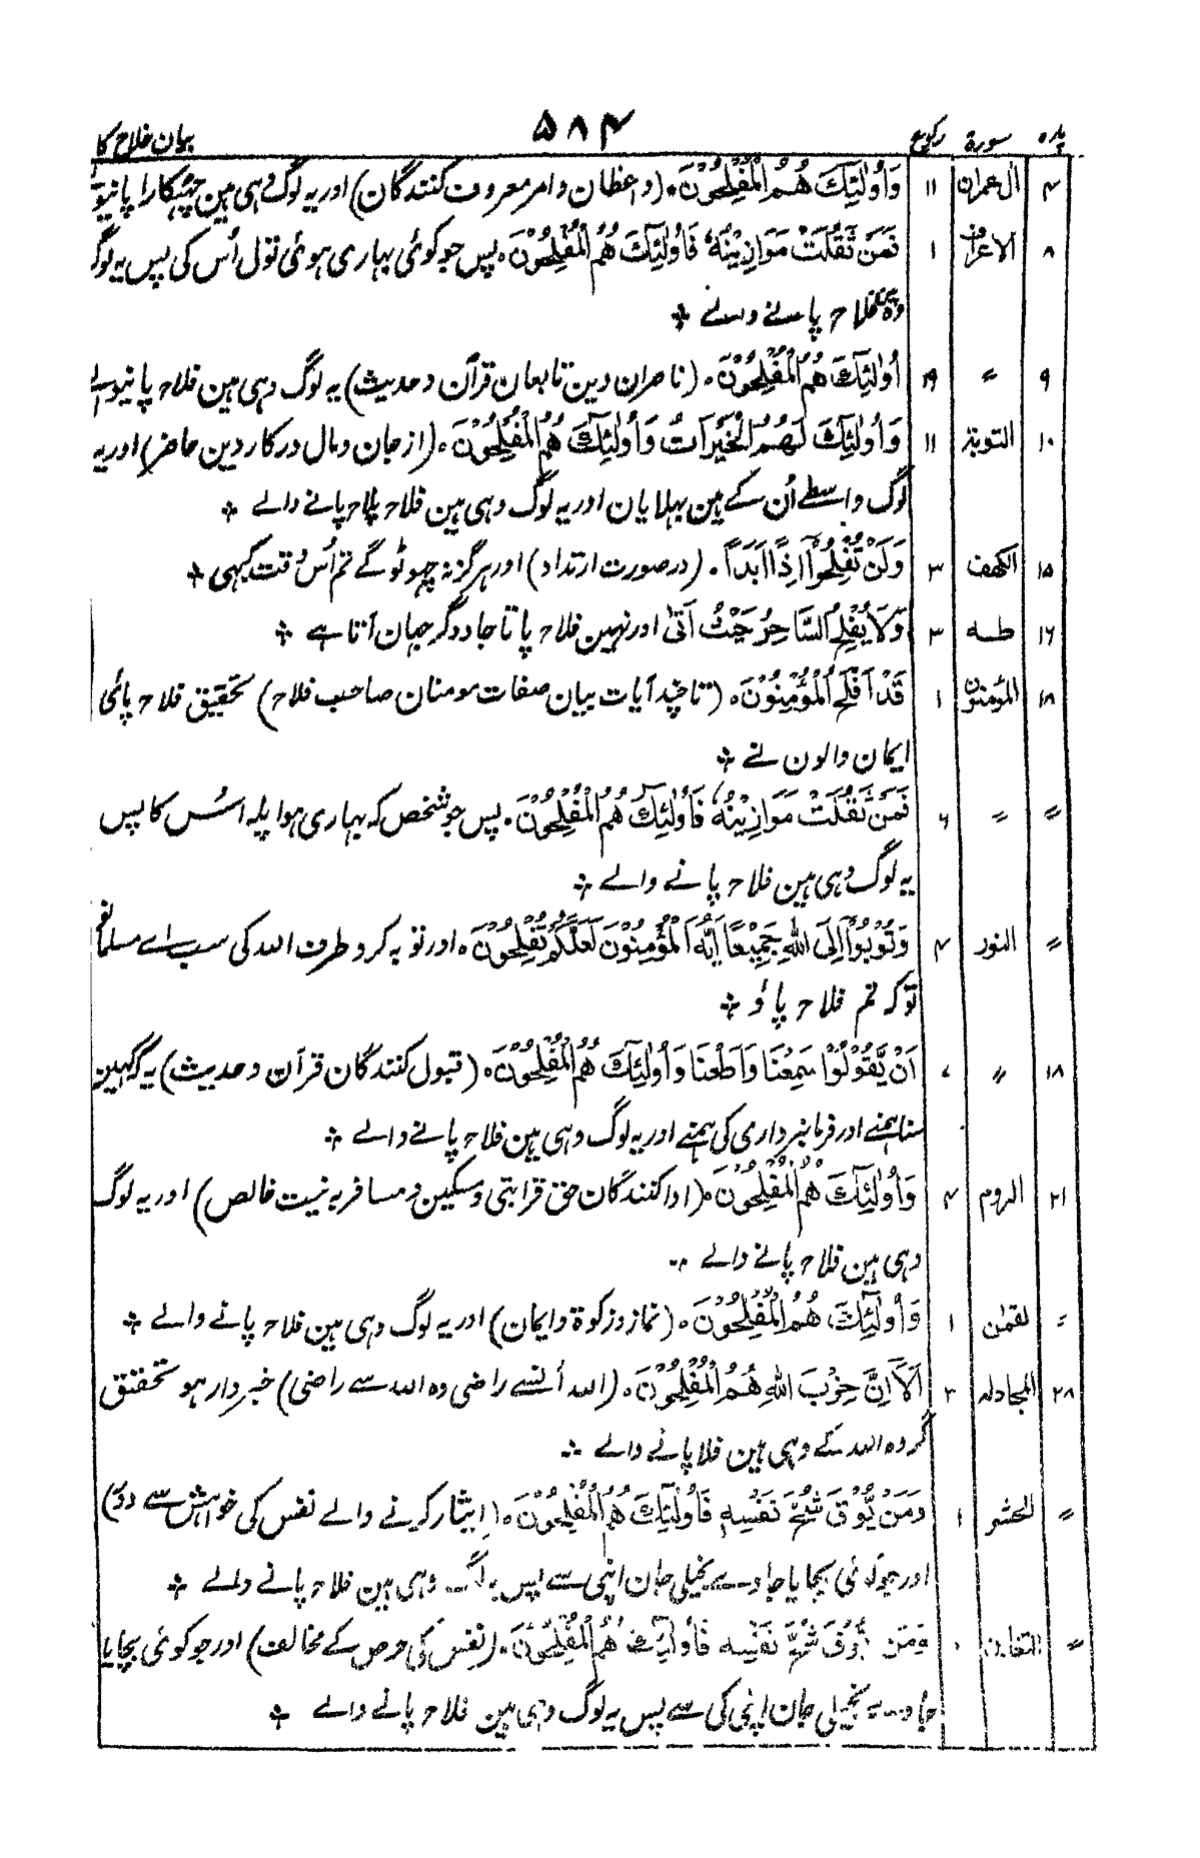 پارہ سورۃ رکوع ۵۸۴ بیان فلاح کا
۴ آل عمران ۱۱ وَأُولٰٓئِكَ هُمُ الْمُفْلِحُوْنَ۔ (واعظان و امر معروف کنندگان) اور یہ لوگ وہی ہین چھٹکارا پانیو
۸ الاعراف ۱ فَمَنْ ثَقُلَتْ مَوَازِيْنُهٗ فَأُولٰٓئِكَ هُمُ الْمُفْلِحُوْنَ۔ پس جو کوئی بہاری ہوئی تول اُس کی پس یہ لوگ
وہی فلاح پانے والے ÷
۹〃 ۱۹ أُولٰٓئِكَ هُمُ الْمُفْلِحُوْنَ۔ (ناصران دین تابعان قرآن و حدیث) یہ لوگ وہی ہین فلاح پانیوالے
۱۰ التوبۃ ۱۱ وَأُولٰٓئِكَ لَهُمُ الْخَيْرَاتُ وَأُولٰٓئِكَ هُمُ الْمُفْلِحُوْنَ۔ (از جان و مال در کار دین حاضر) اور یہ
لوگ واسطے اُن کے ہین بہلایان اور یہ لوگ وہی ہین فلاح پانے والے ÷
۱۵ الکهف ۳ وَلَنْ تُفْلِحُوْٓا اِذًا اَبَدًا۔ (در صورت ارتداد) اور ہرگز نہ چھوٹو گے تم اُس وقت کبہی ÷
۱۶ طٰہ ۳ وَلَا يُفْلِحُ السَّاحِرُ حَيْثُ اَتٰى اور نہین فلاح پاتا جادوگر جہان آتا ہے ÷
۱۸ المؤمنون ۱ قَدْ اَفْلَحَ الْمُؤْمِنُوْنَ۔ (تا چند آیات بیان صفات مومنان صاحب فلاح) تحقیق فلاح پائی
ایمان والون نے ÷
〃 〃 ۶ فَمَنْ ثَقُلَتْ مَوَازِيْنُهٗ فَأُولٰٓئِكَ هُمُ الْمُفْلِحُوْنَ۔ پس جو شخص کہ بہاری ہوا پلہ اُس کا پس
یہ لوگ وہی ہین فلاح پانے والے ÷
〃 النور ۴ وَتُوْبُوْٓا اِلَى اللّٰهِ جَمِيْعًا اَيُّهَ الْمُؤْمِنُوْنَ لَعَلَّكُمْ تُفْلِحُوْنَ۔ اور توبہ کرو طرف اللہ کی سب اے مسلمانو
توکہ تم فلاح پاؤ ÷
۱۸ 〃 ۷ اَنْ يَّقُوْلُوْا سَمِعْنَا وَاَطَعْنَا وَأُولٰٓئِكَ هُمُ الْمُفْلِحُوْنَ۔ (قبول کنندگان قرآن و حدیث) یہ کہ کہین
سنا ہمنے اور فرمانبرداری کی ہمنے اور یہ لوگ وہی ہین فلاح پانے والے ÷
۲۱ الروم ۴ وَأُولٰٓئِكَ هُمُ الْمُفْلِحُوْنَ۔ (ادا کنندگان حق قرابتی و مسکین و مسافر بہ نیت خالص) اور یہ لوگ
وہی ہین فلاح پانے والے ÷
〃 لقمٰن ۱ وَأُولٰٓئِكَ هُمُ الْمُفْلِحُوْنَ۔ (نماز و زکوۃ و ایمان) اور یہ لوگ وہی ہین فلاح پانے والے ÷
۲۸ المجادلہ ۳ اَلَآ اِنَّ حِزْبَ اللّٰهِ هُمُ الْمُفْلِحُوْنَ۔ (اللہ اُنسے راضی وہ اللہ سے راضی) خبردار ہو تحقیق
گروہ اللہ کے وہی ہین فلا پانے والے ÷
〃 الحشر ۱ وَمَنْ يُّوْقَ شُحَّ نَفْسِهٖ فَأُولٰٓئِكَ هُمُ الْمُفْلِحُوْنَ۔ (ایثار کرنے والے نفس کی خواہش سے دور)
اور جو کوئی بچایا جاوے بخیلی جان اپنی سے پس یہ لوگ وہی ہین فلاح پانے والے ÷
〃 التغابن ۲ وَمَنْ يُّوْقَ شُحَّ نَفْسِهٖ فَأُولٰٓئِكَ هُمُ الْمُفْلِحُوْنَ۔ (نفس کی حرص کے مخالف) اور جو کوئی بچایا
جاوے بخیلی جان اپنی کی سے پس یہ لوگ وہی ہین فلاح پانے والے ÷